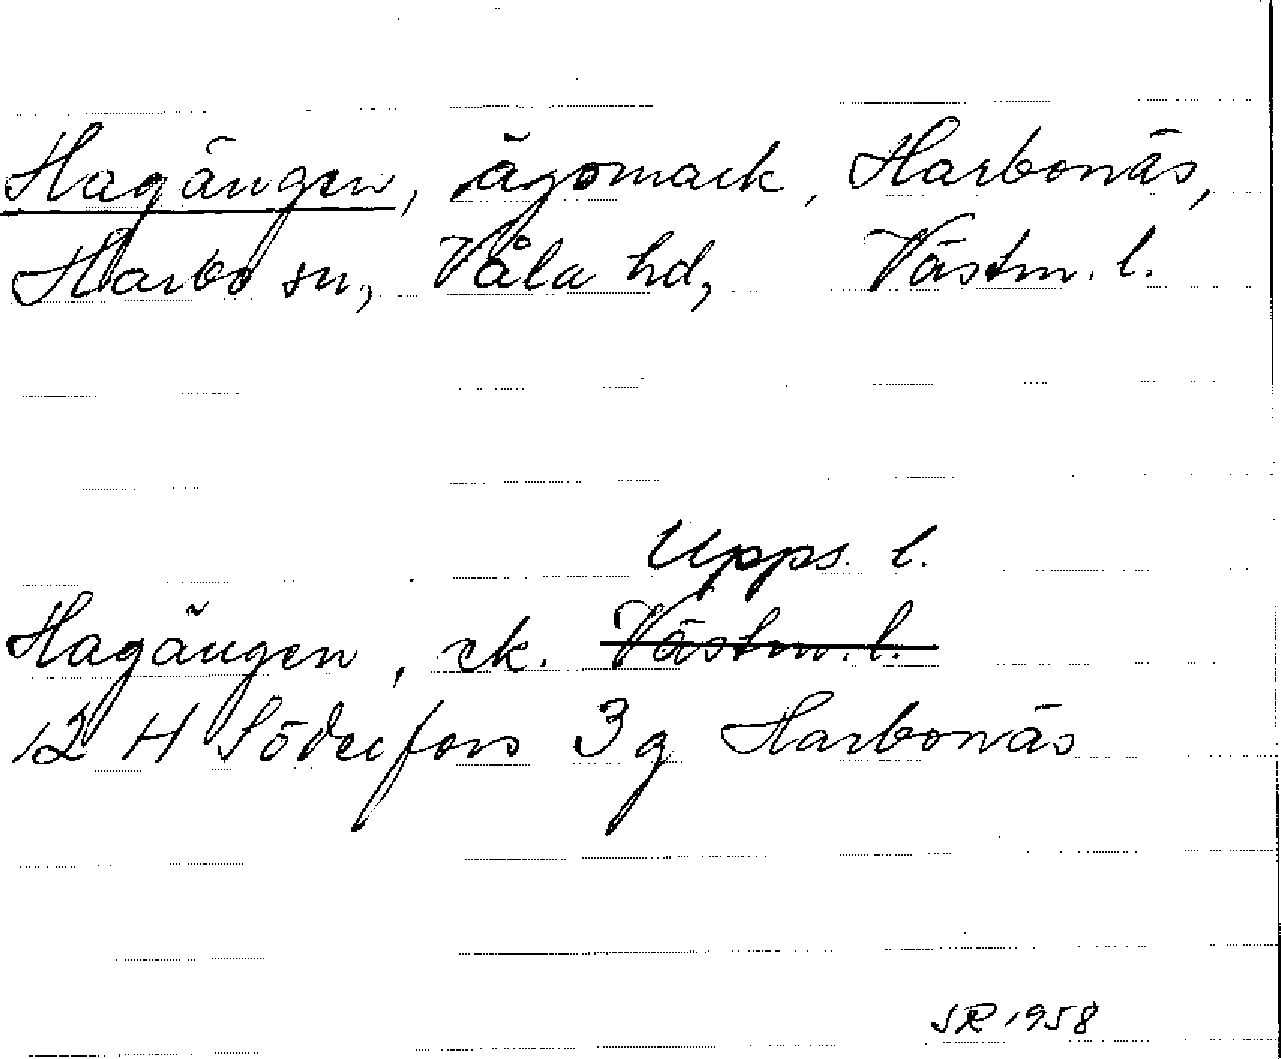 Hagängen, ägomark, Harbonäs,
Harbo sn, Våla hd, Västm. l.
Upps. l.
Hagängen, ek. Västm. l.
12 H Söderfors 3g Harbonäs
SR 1958